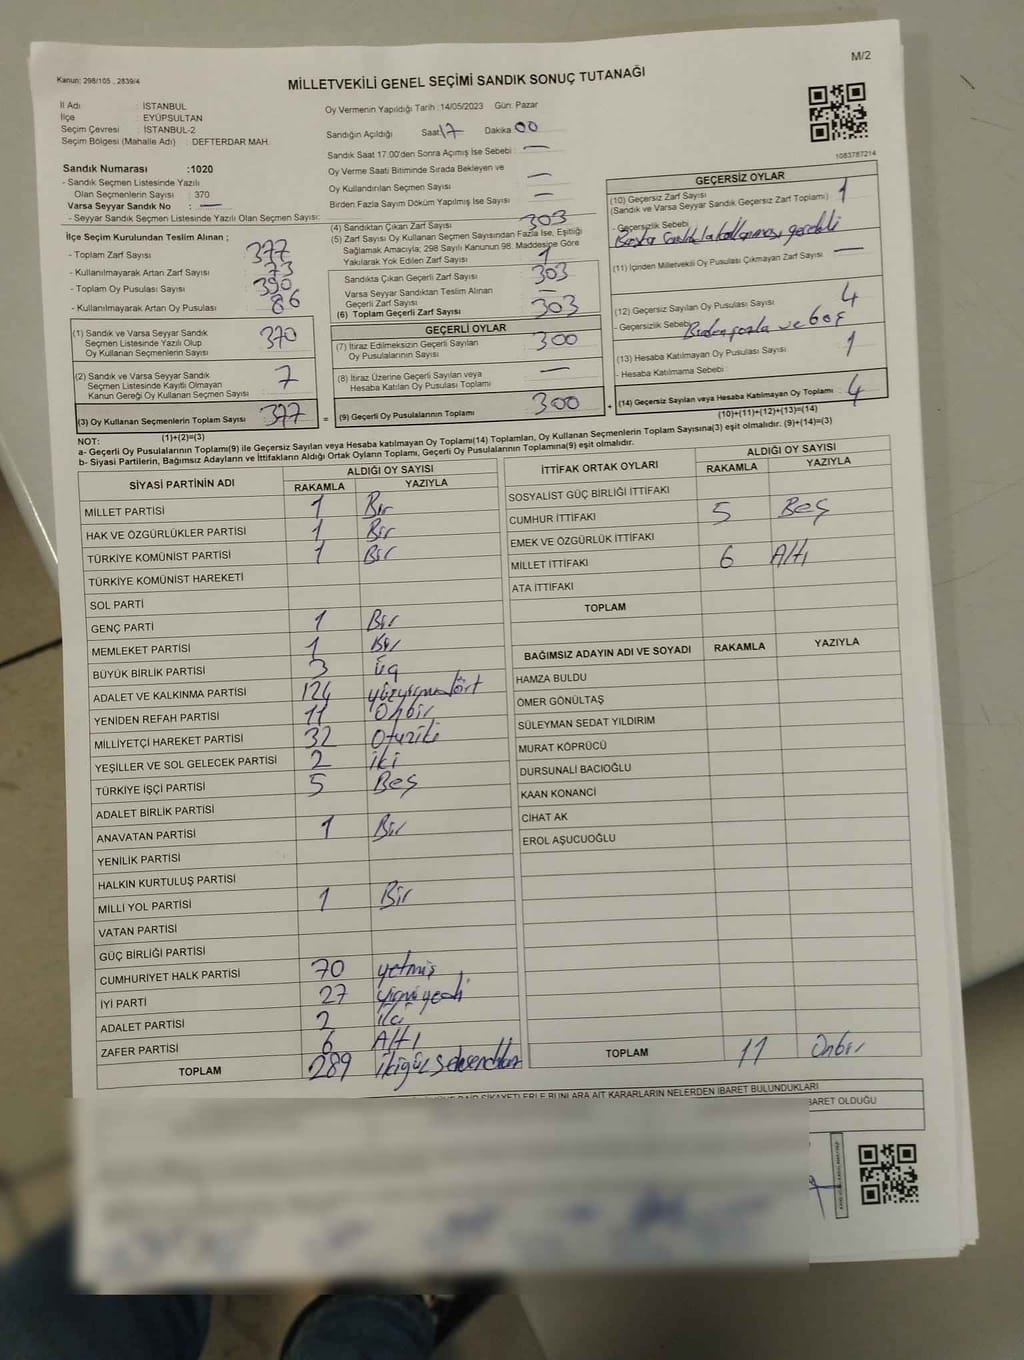 M/2
Kanun: 298/105 , 2839/4
MİLLETVEKİLİ GENEL SEÇİMİ SANDIK SONUÇ TUTANAĞI
İl Adı : İSTANBUL
İlçe : EYÜPSULTAN
Seçim Çevresi : İSTANBUL-2
Seçim Bölgesi (Mahalle Adı) : DEFTERDAR MAH.
Oy Vermenin Yapıldığı Tarih :14/05/2023 Gün: Pazar
Sandığın Açıldığı Saat 17 Dakika 00
Sandık Saat 17:00'den Sonra Açımış İse Sebebi : —
Oy Verme Saati Bitiminde Sırada Bekleyen ve
Oy Kullandırılan Seçmen Sayısı —
Birden Fazla Sayım Döküm Yapılmış İse Sayısı —
1083787214
Sandık Numarası :1020
- Sandık Seçmen Listesinde Yazılı
Olan Seçmenlerin Sayısı : 370
Varsa Seyyar Sandık No : —
- Seyyar Sandık Seçmen Listesinde Yazılı Olan Seçmen Sayısı:
İlçe Seçim Kurulundan Teslim Alınan ;
- Toplam Zarf Sayısı : 377
- Kullanılmayarak Artan Zarf Sayısı : 73
- Toplam Oy Pusulası Sayısı : 390
- Kullanılmayarak Artan Oy Pusulası : 86
(1) Sandık ve Varsa Seyyar Sandık
Seçmen Listesinde Yazılı Olup
Oy Kullanan Seçmenlerin Sayısı 370
(2) Sandık ve Varsa Seyyar Sandık
Seçmen Listesinde Kayıtlı Olmayan
Kanun Gereği Oy Kullanan Seçmen Sayısı 7
(3) Oy Kullanan Seçmenlerin Toplam Sayısı 377 =
(1)+(2)=(3)
(4) Sandıktan Çıkan Zarf Sayısı 303
(5) Zarf Sayısı Oy Kullanan Seçmen Sayısından Fazla İse, Eşitliği
Sağlanak Amacıyla; 298 Sayılı Kanunun 98. Maddesine Göre
Yakılarak Yok Edilen Zarf Sayısı 1
Sandıkta Çıkan Geçerli Zarf Sayısı 303
Varsa Seyyar Sandıktan Teslim Alınan
Geçerli Zarf Sayısı —
(6) Toplam Geçerli Zarf Sayısı 303
GEÇERLİ OYLAR
(7) İtiraz Edilmeksizin Geçerli Sayılan
Oy Pusulalarının Sayısı 300
(8) İtiraz Üzerine Geçerli Sayılan veya
Hesaba Katılan Oy Pusulası Toplamı —
(9) Geçerli Oy Pusulalarının Toplamı 300 +
GEÇERSİZ OYLAR
(10) Geçersiz Zarf Sayısı 1
(Sandık ve Varsa Seyyar Sandık Geçersiz Zarf Toplamı)
- Geçersizlik Sebebi
Başka Sandıkta kullanması gerekli
(11) İçinden Milletvekili Oy Pusulası Çıkmayan Zarf Sayısı —
(12) Geçersiz Sayılan Oy Pusulası Sayısı 4
- Geçersizlik Sebebi Birden fazla ve boş
(13) Hesaba Katılmayan Oy Pusulası Sayısı 1
- Hesaba Katılmama Sebebi :
(14) Geçersiz Sayılan veya Hesaba Katılmayan Oy Toplamı 4
(10)+(11)+(12)+(13)=(14)
NOT:
a- Geçerli Oy Pusulalarının Toplamı(9) ile Geçersiz Sayılan veya Hesaba katılmayan Oy Toplamı(14) Toplamları, Oy Kullanan Seçmenlerin Toplam Sayısına(3) eşit olmalıdır. (9)+(14)=(3)
b- Siyasi Partilerin, Bağımsız Adayların ve İttifakların Aldığı Ortak Oyların Toplamı, Geçerli Oy Pusulalarının Toplamına(9) eşit olmalıdır.
SİYASİ PARTİNİN ADI ALDIĞI OY SAYISI
RAKAMLA YAZIYLA
MİLLET PARTİSİ 1 Bir
HAK VE ÖZGÜRLÜKLER PARTİSİ 1 Bir
TÜRKİYE KOMÜNİST PARTİSİ 1 Bir
TÜRKİYE KOMÜNİST HAREKETİ
SOL PARTİ
GENÇ PARTİ 1 Bir
MEMLEKET PARTİSİ 1 Bir
BÜYÜK BİRLİK PARTİSİ 3 Üç
ADALET VE KALKINMA PARTİSİ 124 yüzyirmidört
YENİDEN REFAH PARTİSİ 11 Onbir
MİLLİYETÇİ HAREKET PARTİSİ 32 Otuziki
YEŞİLLER VE SOL GELECEK PARTİSİ 2 iki
TÜRKİYE İŞÇİ PARTİSİ 5 Beş
ADALET BİRLİK PARTİSİ
ANAVATAN PARTİSİ 1 Bir
YENİLİK PARTİSİ
HALKIN KURTULUŞ PARTİSİ
MİLLİ YOL PARTİSİ 1 Bir
VATAN PARTİSİ
GÜÇ BİRLİĞİ PARTİSİ
CUMHURİYET HALK PARTİSİ 70 yetmiş
İYİ PARTİ 27 yirmiyedi
ADALET PARTİSİ 2 İki
ZAFER PARTİSİ 6 Altı
TOPLAM 289 ikiyüzseksendokuz
İTTİFAK ORTAK OYLARI ALDIĞI OY SAYISI
RAKAMLA YAZIYLA
SOSYALİST GÜÇ BİRLİĞİ İTTİFAKI
CUMHUR İTTİFAKI 5 Beş
EMEK VE ÖZGÜRLÜK İTTİFAKI
MİLLET İTTİFAKI 6 Altı
ATA İTTİFAKI
TOPLAM
BAĞIMSIZ ADAYIN ADI VE SOYADI RAKAMLA YAZIYLA
HAMZA BULDU
ÖMER GÖNÜLTAŞ
SÜLEYMAN SEDAT YILDIRIM
MURAT KÖPRÜCÜ
DURSUNALİ BACIOĞLU
KAAN KONANCİ
CİHAT AK
EROL AŞUCUOĞLU
TOPLAM 11 Onbir
ŞİKAYETLERLE BUNLARA AİT KARARLARIN NELERDEN İBARET BULUNDUKLARI
BARET OLDUĞU